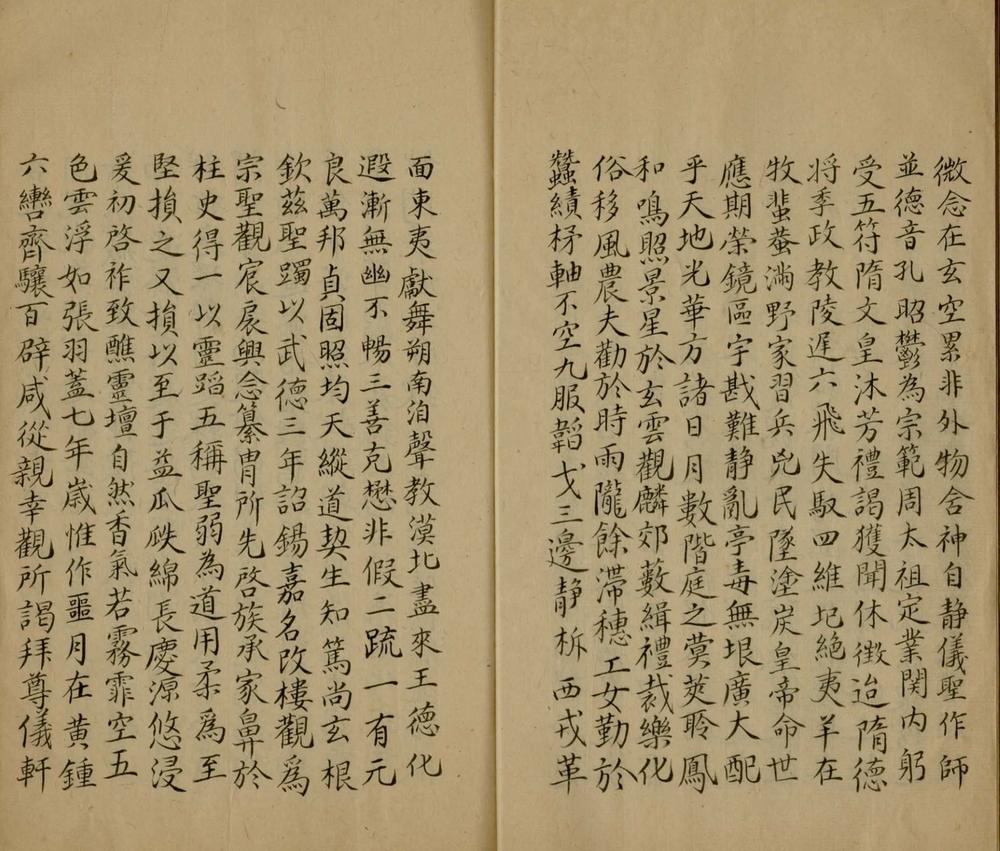 微念在玄空累非外物舍神自静儀聖作師
並德音孔昭鬱為宗範周太祖定業関内躬
受五符隋文皇沐芳禮謁獲聞休徴迨隋德
将季政教陵遅六飛失馭四維圮絶夷羊在
牧蜚蛬滿野家習兵兇民墜塗炭皇帝命世
應期榮鏡區宇戡難静亂亭毒無垠廣大配
乎天地光華方諸日月數階庭之蓂莢聆鳳
和鳴照景星於玄雲觀麟郊藪緝禮裁樂化
俗移風農夫勸於時雨隴餘滯穗工女勤於
蠶績柕軸不空九服韜戈三邊静柝西戎革
面東夷獻舞朔南泊聲教漠北盡來王德化
遐漸無幽不暢三善克懋非假二疏一有元
良萬邦貞固照均天縱道契生知篤尚玄根
欽茲聖躅以武德三年詔錫嘉名改樓觀為
宗聖觀宸扆興念纂胄所先啓族承家鼻於
柱史得一以靈蹈五稱聖弱為道用柔為至
堅損之又損以至于益瓜瓞綿長慶源悠浸
爰初啓祚致醮靈壇自然香氣若霧霏空五
色雲浮如張羽蓋七年嵗惟作噩月在黄鍾
六轡齊驤百辟咸從親幸觀所謁拜尊儀軒